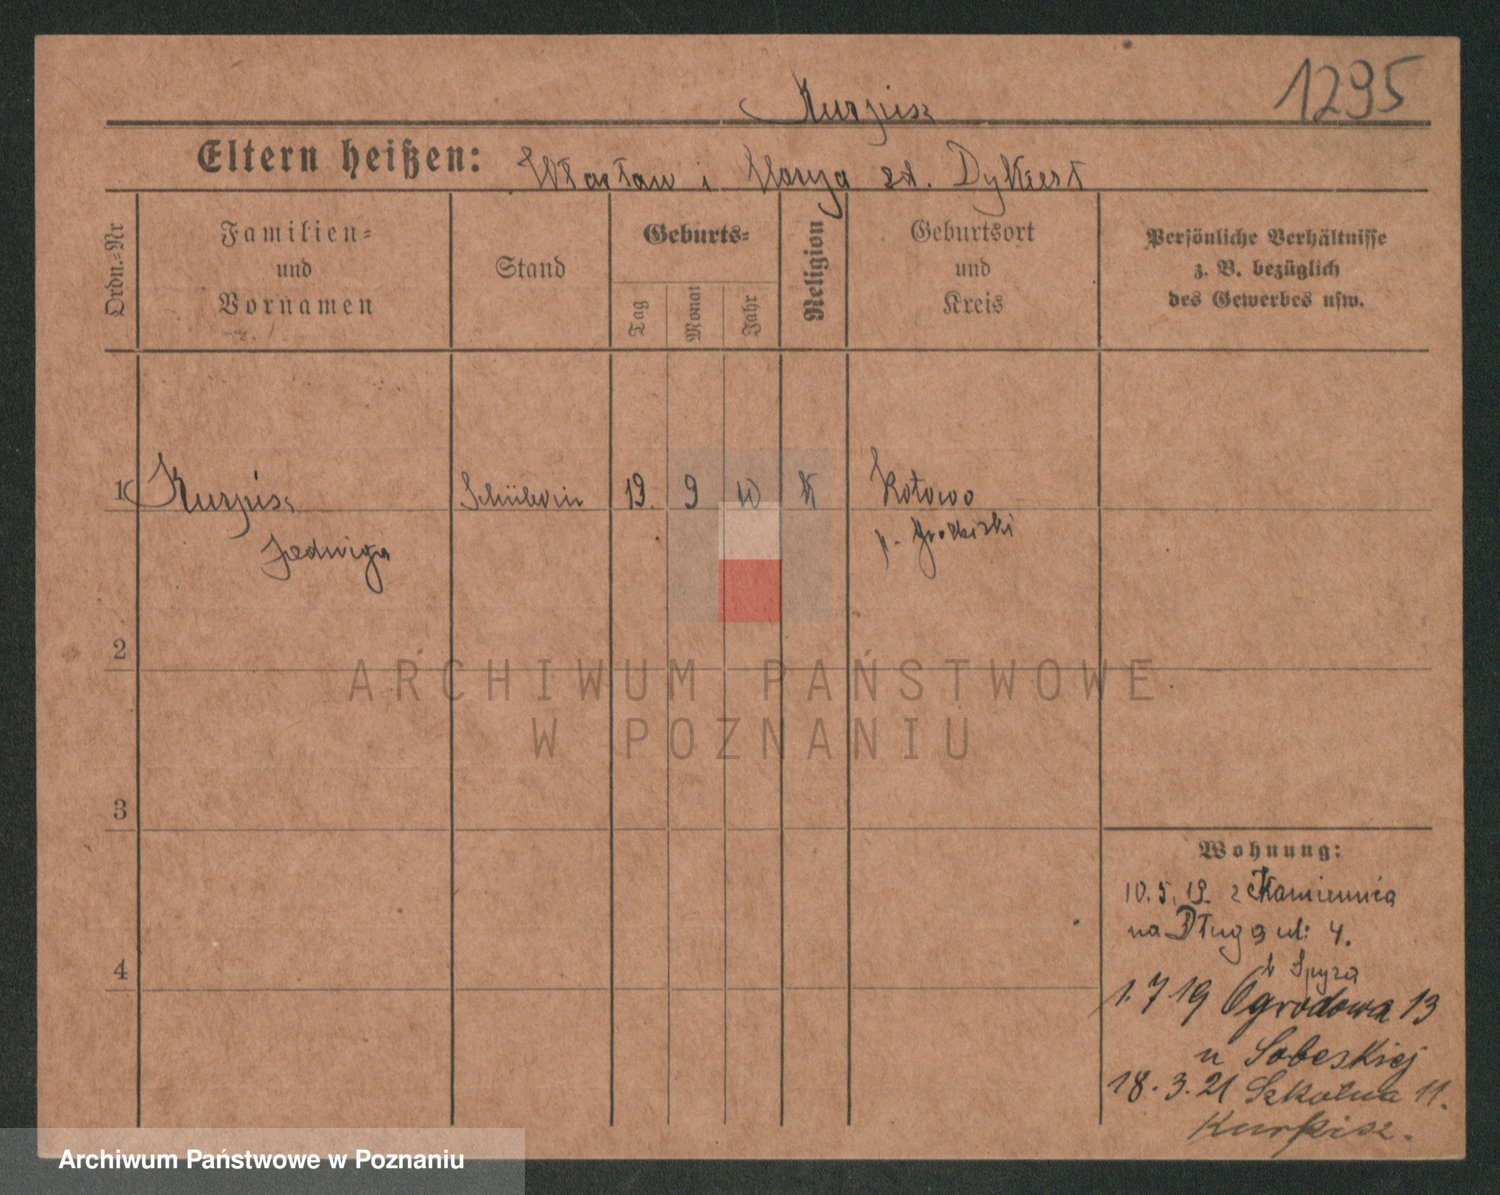 1295
Kurpisz
Eltern heißen: Wacław i Marya zd. Dykiert
Ordn.-Nr
Familien-
und
Vornamen
Stand
Geburts-
Tag
Monat
Jahr
Religion
Geburtsort
und
Kreis
Persönliche Verhältnisse
z. B. bezüglich
des Gewerbes usw.
1 Kurpisz Schülerin 19. 9 10 K Kotowo
Jedwiga p. Grodziski
2
3
4
Wohnung:
10.5.19 z Kamiennica
na Długa ul: 4.
b Spyra
1.7 19 Ogrodowa 13
u Sobeskiej
18.3.21 Szkolna 11.
Kurpisz.
ARCHIWUM PAŃSTWOWE
W POZNANIU
Archiwum Państwowe w Poznaniu